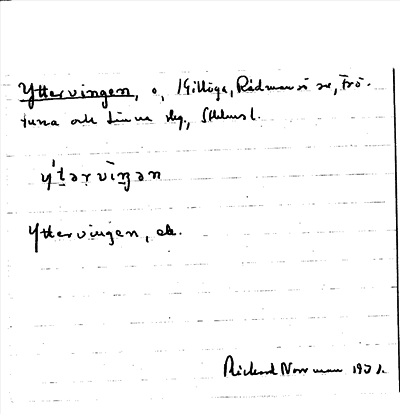 Yttervingen, ö, /Gillöga, Rådmansö sn, Frö-
tuna och Länna skg., Sthlms l.
y't̠ər vìŋən
Yttervingen, ek.
Rickard Norrman 1931.